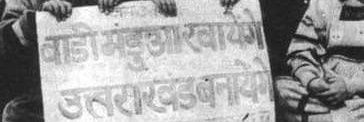 वाडी मडुआ खायेंगे
उत्तराखंड बनायेंगे